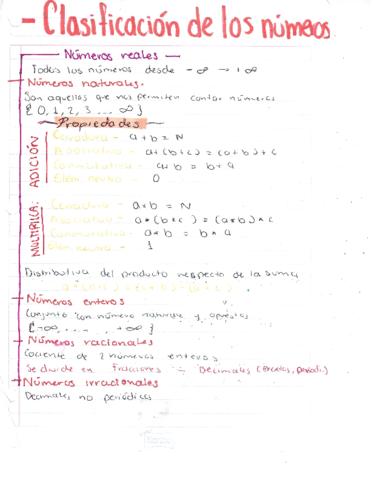 - Clasificación de los números
Números reales
Todos los números desde -∞ → +∞
Números naturales.
Son aquellos que nos permiten contar números
{0, 1, 2, 3 ... ∞}
- Propiedades -
ADICIÓN
Cerradura - a + b = N
Asociativa - a+(b+c) = (a+b)+c
Conmutativa - a+b = b+a
Elem. neutro - 0
MULTIPLICA:
Cerradura - a*b = N
Asociativa - a*(b*c) = (a*b)*c
Conmutativa - a*b = b*a
Elem neutro - 1
Distributiva del producto respecto de la suma
Números enteros
Conjunto con número naturales y opuestos
{-∞, ... , +∞}
Números racionales
Cociente de 2 números enteros
Se divide en fracciones - Decimales
Números irracionales
Decimales no periódicos